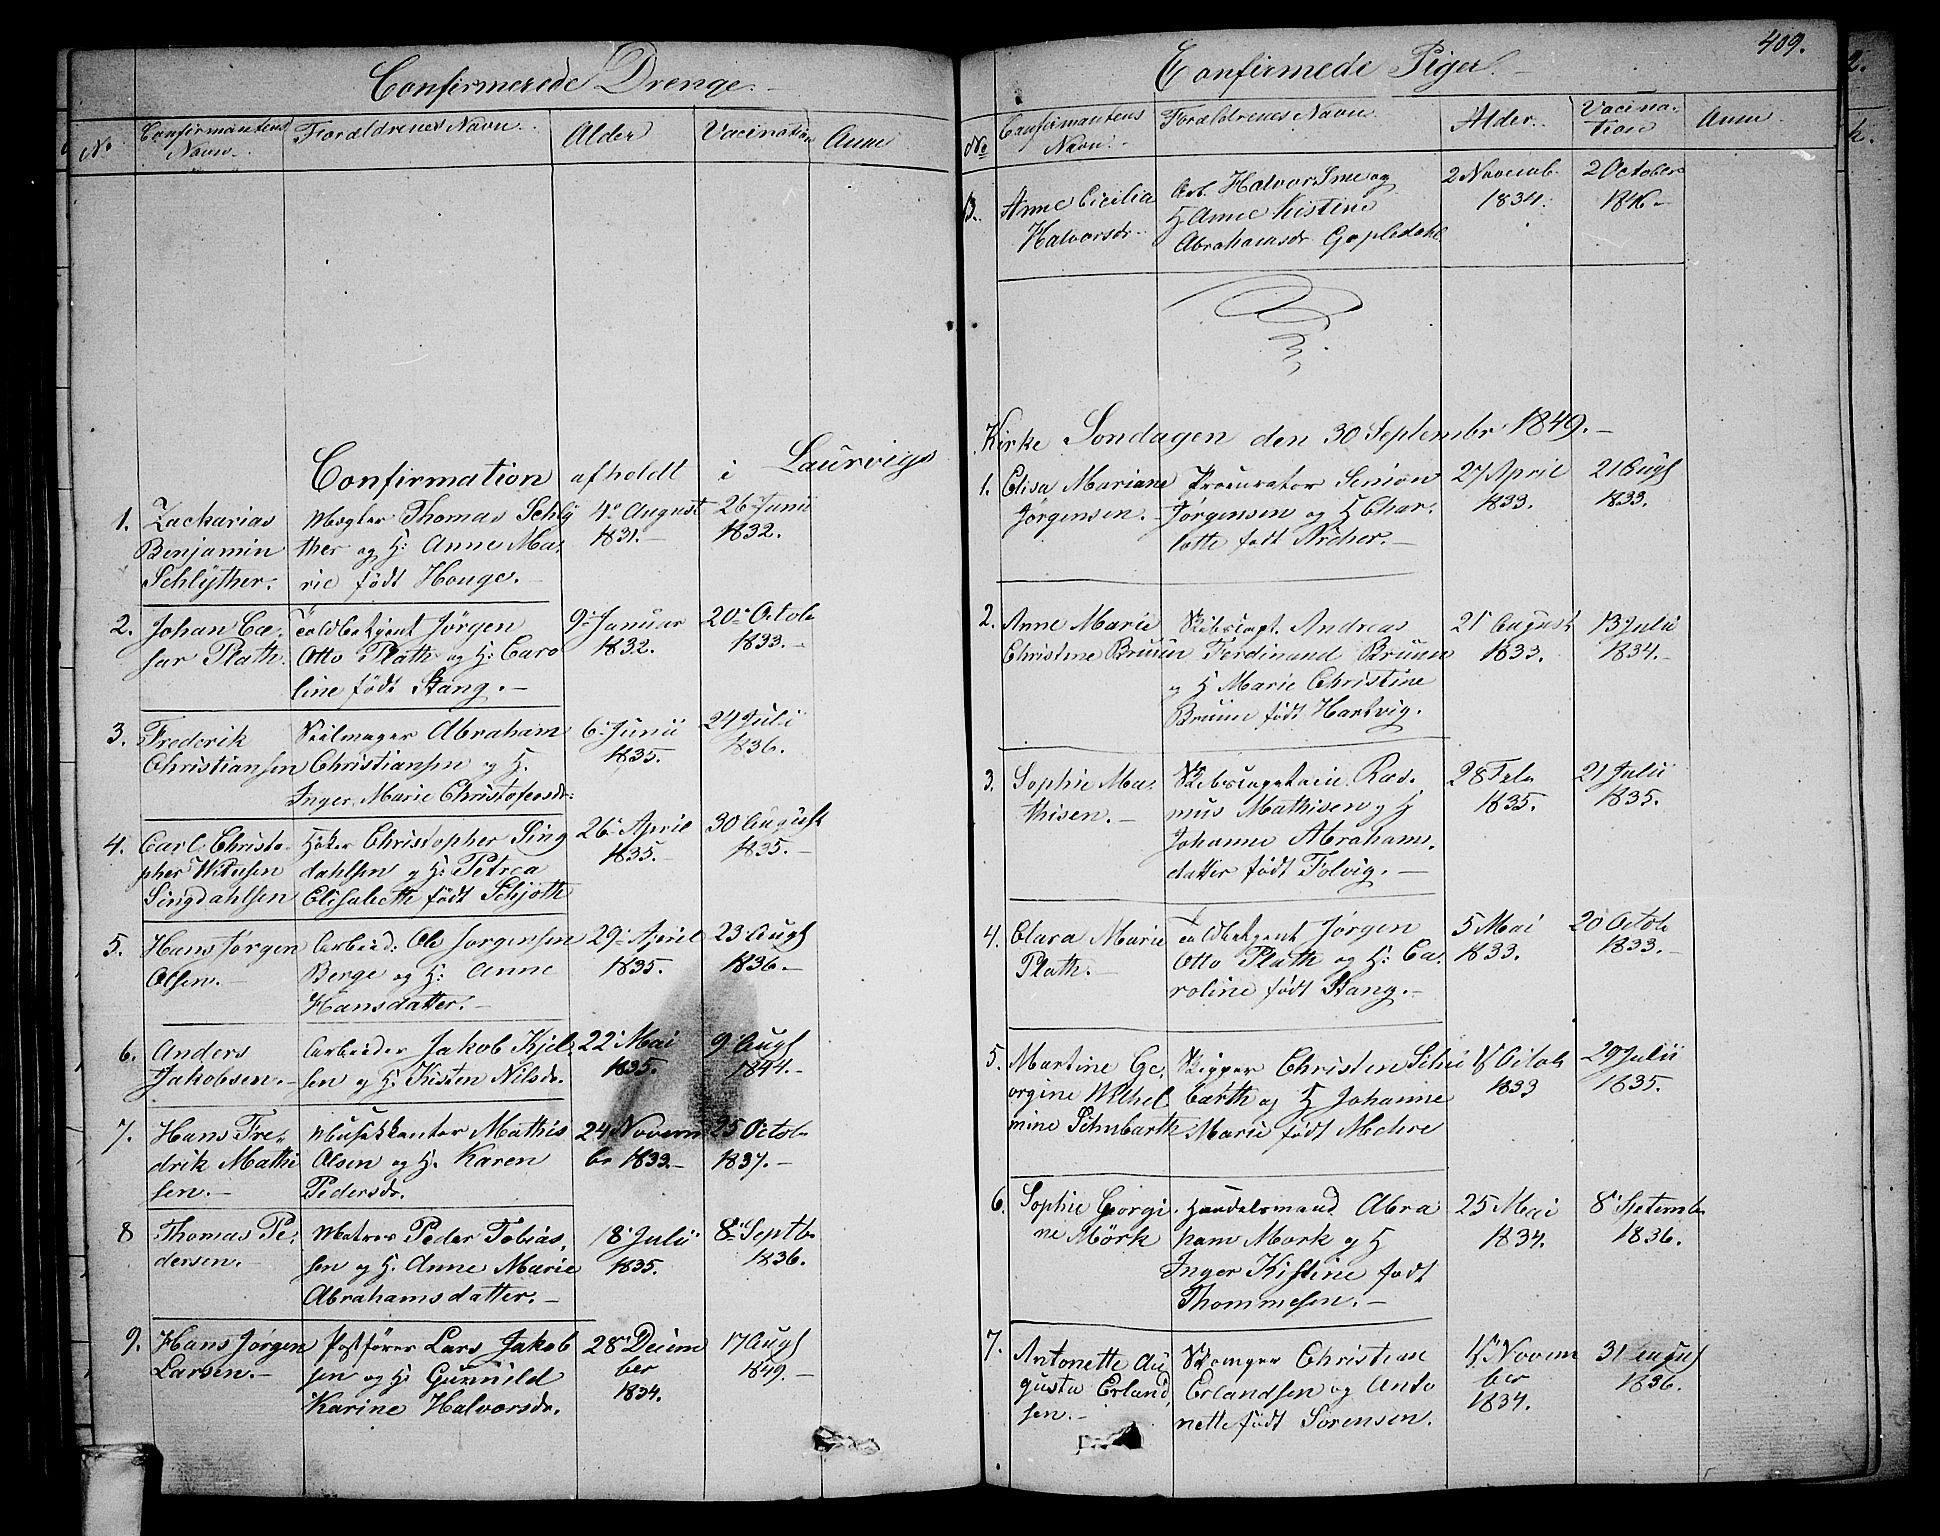 Confirmerede Drenge.
No
Confirmantens
Navn.
Forældrenes Navn.
Alder
Vacination
Anm
Confirmation afholdt i Laurvigs
1.
Zackarias
Benjamin
Schlÿther.
Mægler Thomas Schlÿ
ther og H: Anne Ma-
rie født Houge.
4de August
1831.
26 Junii
1832.
2.
Johan Cæ-
sar Plath.
Toldbetjent Jørgen
Otto Plath og H: Caro
line født Stang.
9. Januar
1832.
20 Octob
1833.
3.
Frederik
Christiansen
Seilmager Abraham
Christiansen og H.
Inger Marie Christofersdr.
6. Junii
1835.
24 Julii
1836.
4.
Carl Christo-
pher
Singdahlsen
Høker Christopher Sing
dahlsen og H: Petrea
Elisabeth født Schjøth
26 April
1835.
30 August
1835.
5.
Hans Jørgen
Olsen.
Arbeid: Ole Jørgensen
Berge og H: Anne
Hansdatter.
29. April
1835.
23 Augs
1836.
6.
Anders
Jakobsen.
Arbeider Jakob Kjel-
sen og H. Kisten Nilsdr.
22 Mai
1835.
9 Augs
1844.
7.
Hans Fre-
drik Mathi
sen.
Musikkantor Mathis
Olsen og H. Karen
Pedersdr.
24 Novem
br 1833.
25 Octob
1837.
8
Thomas Pe-
dersen.
Matros Peder Tobias-
sen og H. Anne Marie
Abrahamsdatter.
18 Julii
1835.
8de Septb
1836.
9.
Hans Jørgen
Larsen.
Postfører Lars Jakob
sen og H: Gunnild
Karine Halvorsdr.
28 Decem
ber
1834.
17 Augs
1849.
Confirmede Piger.
409.
No
Confirmantens
Navn.
Forældrenes Navn
Alder.
Vacina-
tion
Anm.
13.
Anne Cicilia
Halvorsdr.
Arb. Halvor Ime og
H Anne Kistine
Abrahamsdr Gopledahl
2 Novemb.
1834.
2 October
1846.
Kirke Søndagen den 30 Septembr 1849.
1.
Elisa Mariane
Jørgensen.
Procurator Simon
Jørgensen og H Char-
lotte født Archer.
27 April
1833.
21 Augs
1833.
2.
Anne Marie
Christine Bruun
Skibscapt. Andreas
Ferdinand Bruun
og H Marie Christine
Bruun født Hartvig.
21 August
1833.
13 Julii
1834.
3.
Sophie Ma-
thisen.
Skibscapetain Ras-
mus Mathisen og H
Johanne Abrahams-
datter født Tolvig.
28 Feb
1835.
21 Julii
1835.
4.
Clara Marie
Plath.
Toldbetjent Jørgen
Otto Plath og H: Ca-
roline født Stang.
5 Mai
1833.
20 Octob
1833.
5.
Martine Ge-
orgine Wilhel-
mine Schubarth
Skipper Christen Schu
barth og H Johanne
Marie født Mehre
Octob
1833
29 Julii
1835.
6.
Sophie Georgi
ne Mørk
Handelsmand Abra
ham Mørk og H
Inger Kistine født
Thommesen.
25 Mai
1834.
8 Sptemb
1836.
7.
Antonette Au
gusta Erland-
sen.
Christian
Erlandsen og Anto
nette født Sørensen.
Novem
ber
1834.
31 Augus
1836.